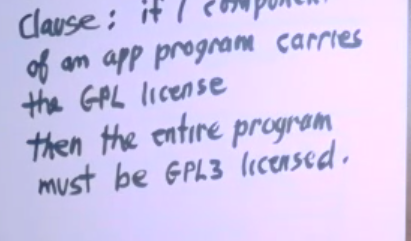 Clause: if 1 component
of an app program carries
the GPL license
then the entire program
must be GPL3 licensed.